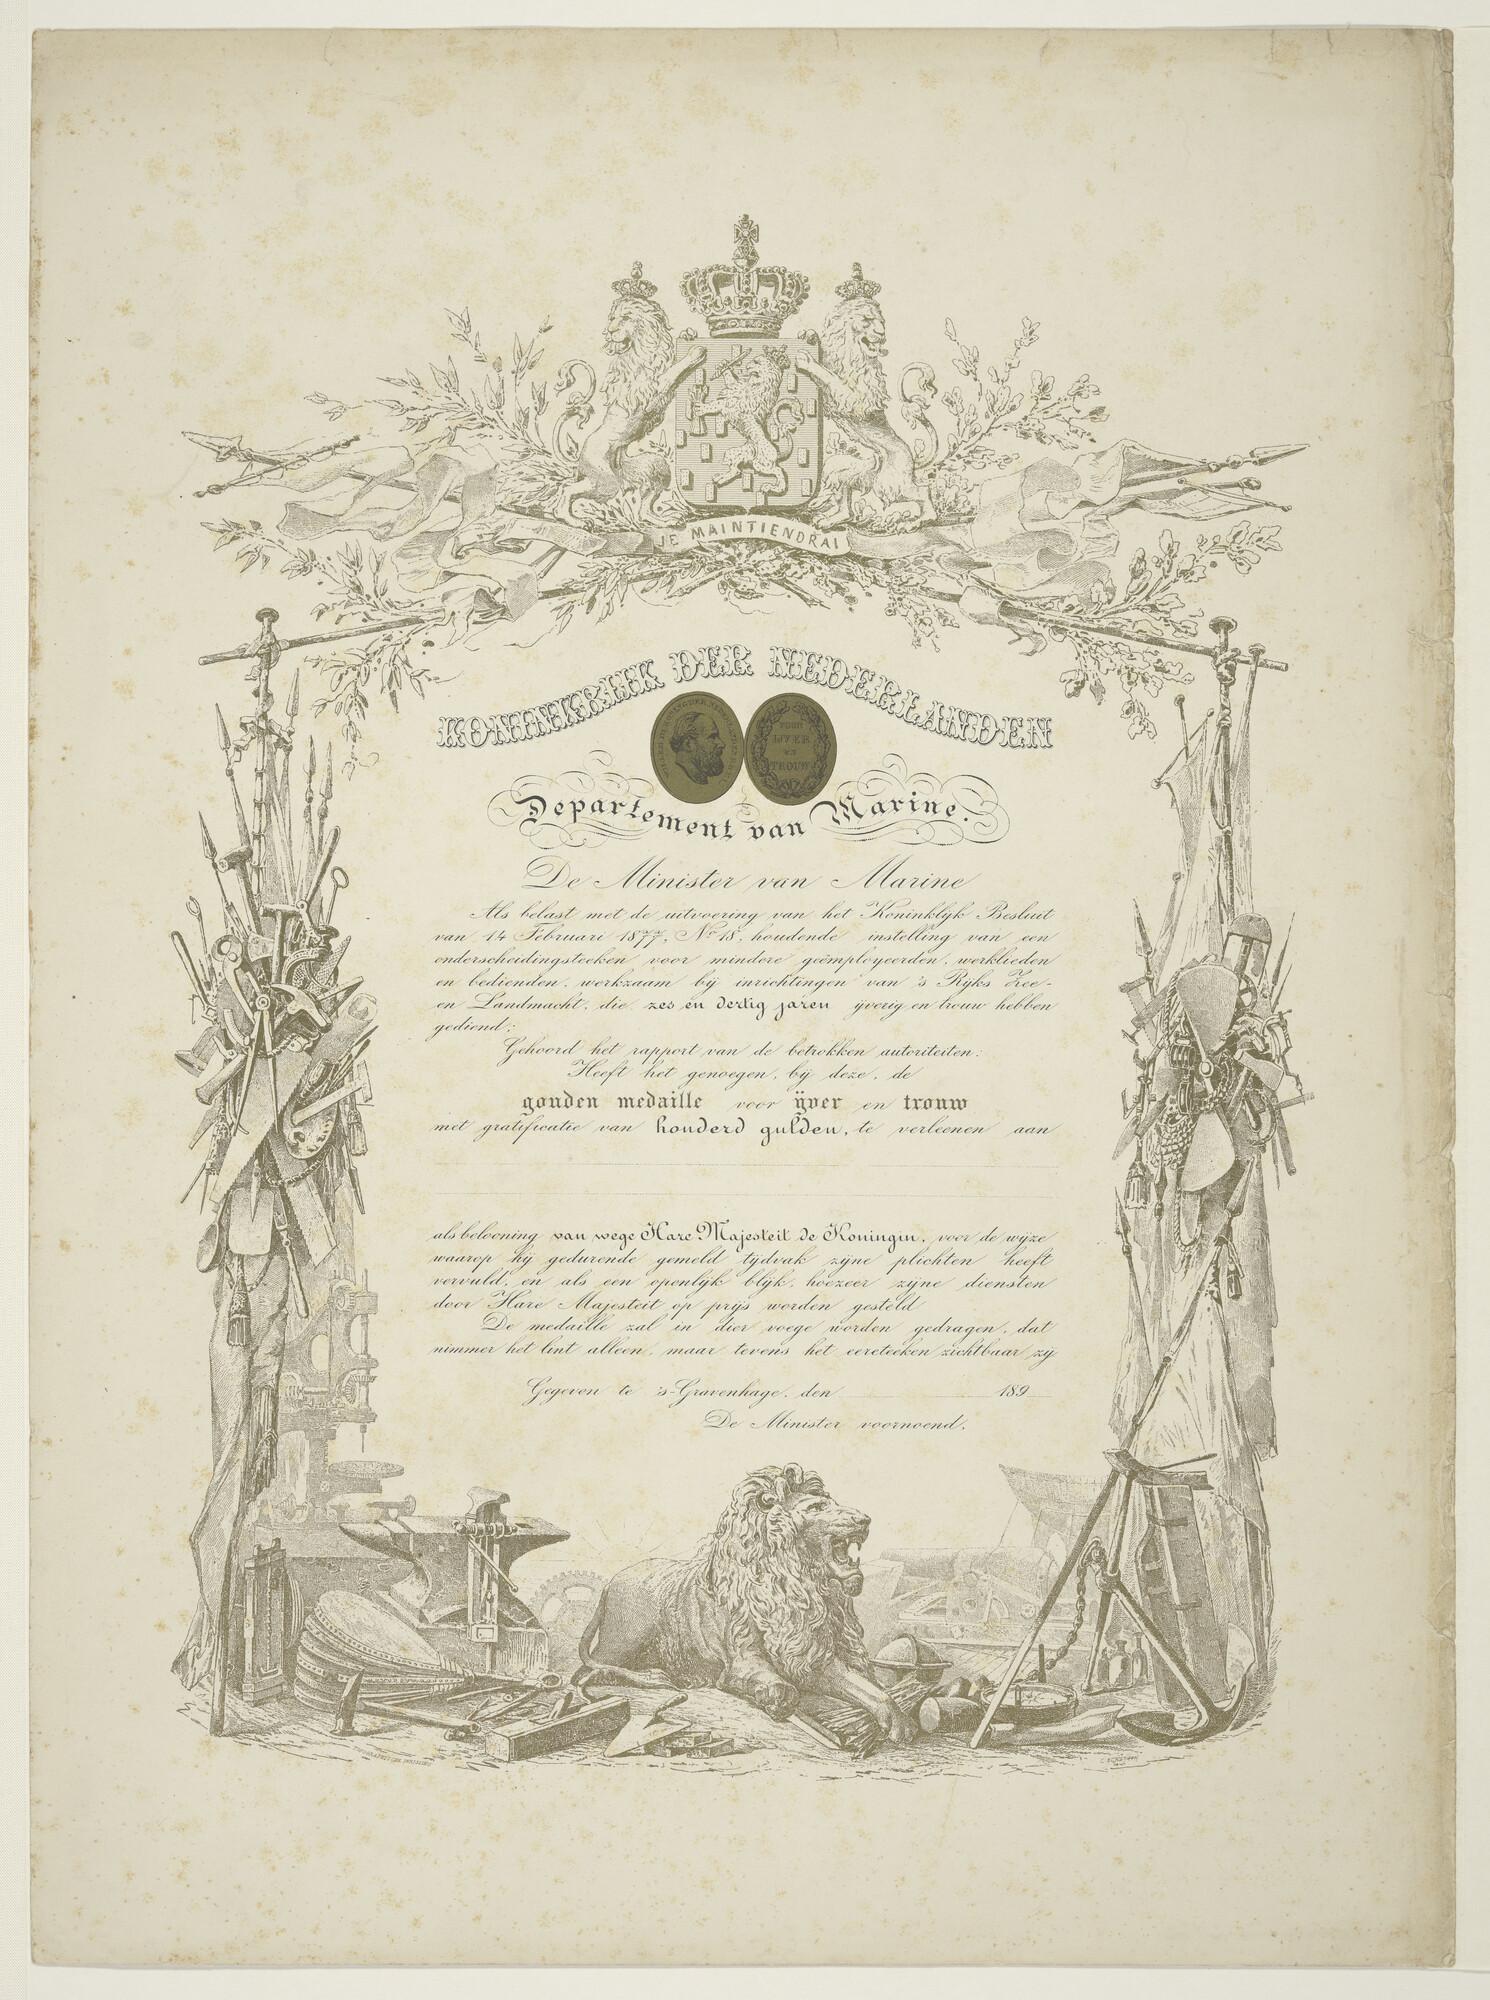 JE MAINTIENDRAI
KONINKRIJK DER NEDERLANDEN
VOOR
IJVER
EN
TROUW
Departement van Marine.
De Minister van Marine
Als belast met de uitvoering van het Koninklijk Besluit
van 14 Februari 1877, No 18, houdende instelling van een
onderscheidingsteeken voor mindere geëmployeerden, werklieden
en bedienden, werkzaam bij inrichtingen van 's Rijks Zee-
en Landmacht, die zes en dertig jaren ijverig en trouw hebben
gediend;
Gehoord het rapport van de betrokken autoriteiten:
Heeft het genoegen, bij deze, de
gouden medaille voor ijver en trouw
met gratificatie van honderd gulden, te verleenen aan
als belooning van wege Hare Majesteit de Koningin, voor de wijze
waarop hij gedurende gemeld tijdvak zijne plichten heeft
vervuld, en als een openlijk blijk, hoezeer zijne diensten
door Hare Majesteit op prijs worden gesteld
De medaille zal in dier voege worden gedragen, dat
nimmer het lint alleen, maar tevens het eereteeken zichtbaar zij
Gegeven te 's-Gravenhage, den 189
De Minister voornoemd,